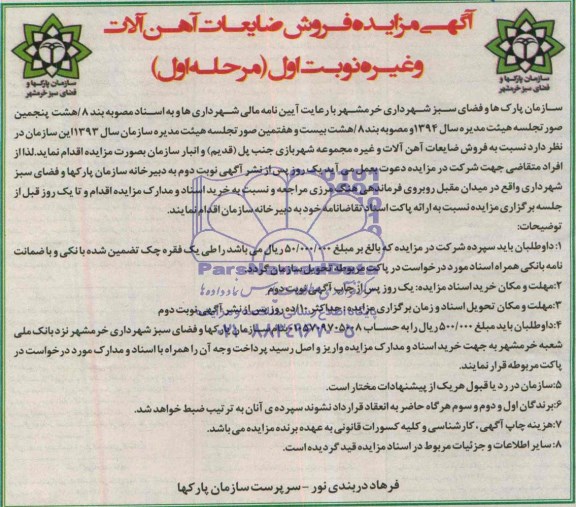 آگهی مزایده فروش ضایعات آهن آلات
و غیره نوبت اول (مرحله اول)
سازمان پارکها و
فضای سبز خرمشهر
سازمان پارکها و
فضای سبز خرمشهر
سازمان پارک ها و فضای سبز شهرداری خرمشهر با رعایت آیین نامه مالی شهرداری ها و به اسناد مصوبه بند ۸/هشت پنجمین
صورتجلسه هیئت مدیره سال ۱۳۹۴ و مصوبه بند ۸/هشت بیست و هفتمین صورتجلسه هیئت مدیره سازمان سال ۱۳۹۳ این سازمان در
نظر دارد نسبت به فروش ضایعات آهن آلات و غیره مجموعه شهربازی جنب پل (قدیم) و انبار سازمان بصورت مزایده اقدام نماید. لذا از
افراد متقاضی جهت شرکت در مزایده دعوت بعمل می آید یک روز پس از نشر آگهی نوبت دوم به دبیرخانه سازمان پارکها و فضای سبز
شهرداری واقع در میدان مقبل روبروی فرماندهی هنگ مرزی مراجعه و نسبت به خرید اسناد و مدارک مزایده اقدام و تا یک روز قبل از
جلسه برگزاری مزایده نسبت به ارائه پاکت اسناد تقاضانامه خود به دبیرخانه سازمان اقدام نمایند.
توضیحات:
۱: داوطلبان باید سپرده شرکت در مزایده که بالغ بر مبلغ ۵۰/۰۰۰/۰۰۰ ریال می باشد را طی یک فقره چک تضمین شده بانکی و با ضمانت
نامه بانکی همراه اسناد مورد درخواست در پاکت مربوطه تحویل سازمان گردد.
۲: مهلت و مکان خرید اسناد مزایده: یک روز پس از چاپ آگهی نوبت دوم
۳: مهلت و مکان تحویل اسناد و زمان برگزاری مزایده: حداکثر ۱۰/ده روز پس از نشر آگهی نوبت دوم
۴: داوطلبان باید مبلغ ۵۰۰/۰۰۰ ریال را به حساب سازمان پارکها و فضای سبز شهرداری خرمشهر نزد بانک ملی
شعبه خرمشهر به جهت خرید اسناد و مدارک مزایده واریز و اصل رسید پرداخت وجه آن را همراه با اسناد و مدارک مورد درخواست در
پاکت مربوطه قرار نمایند.
۵: سازمان در رد یا قبول هر یک از پیشنهادات مختار است.
۶: برندگان اول و دوم و سوم هرگاه حاضر به انعقاد قرارداد نشوند سپرده ی آنان به ترتیب ضبط خواهد شد.
۷: هزینه چاپ آگهی، کارشناسی و کلیه کسورات قانونی به عهده برنده مزایده می باشد.
۸: سایر اطلاعات و جزئیات مربوط در اسناد مزایده قید گردیده است.
فرهاد دربندی نور - سرپرست سازمان پارکها